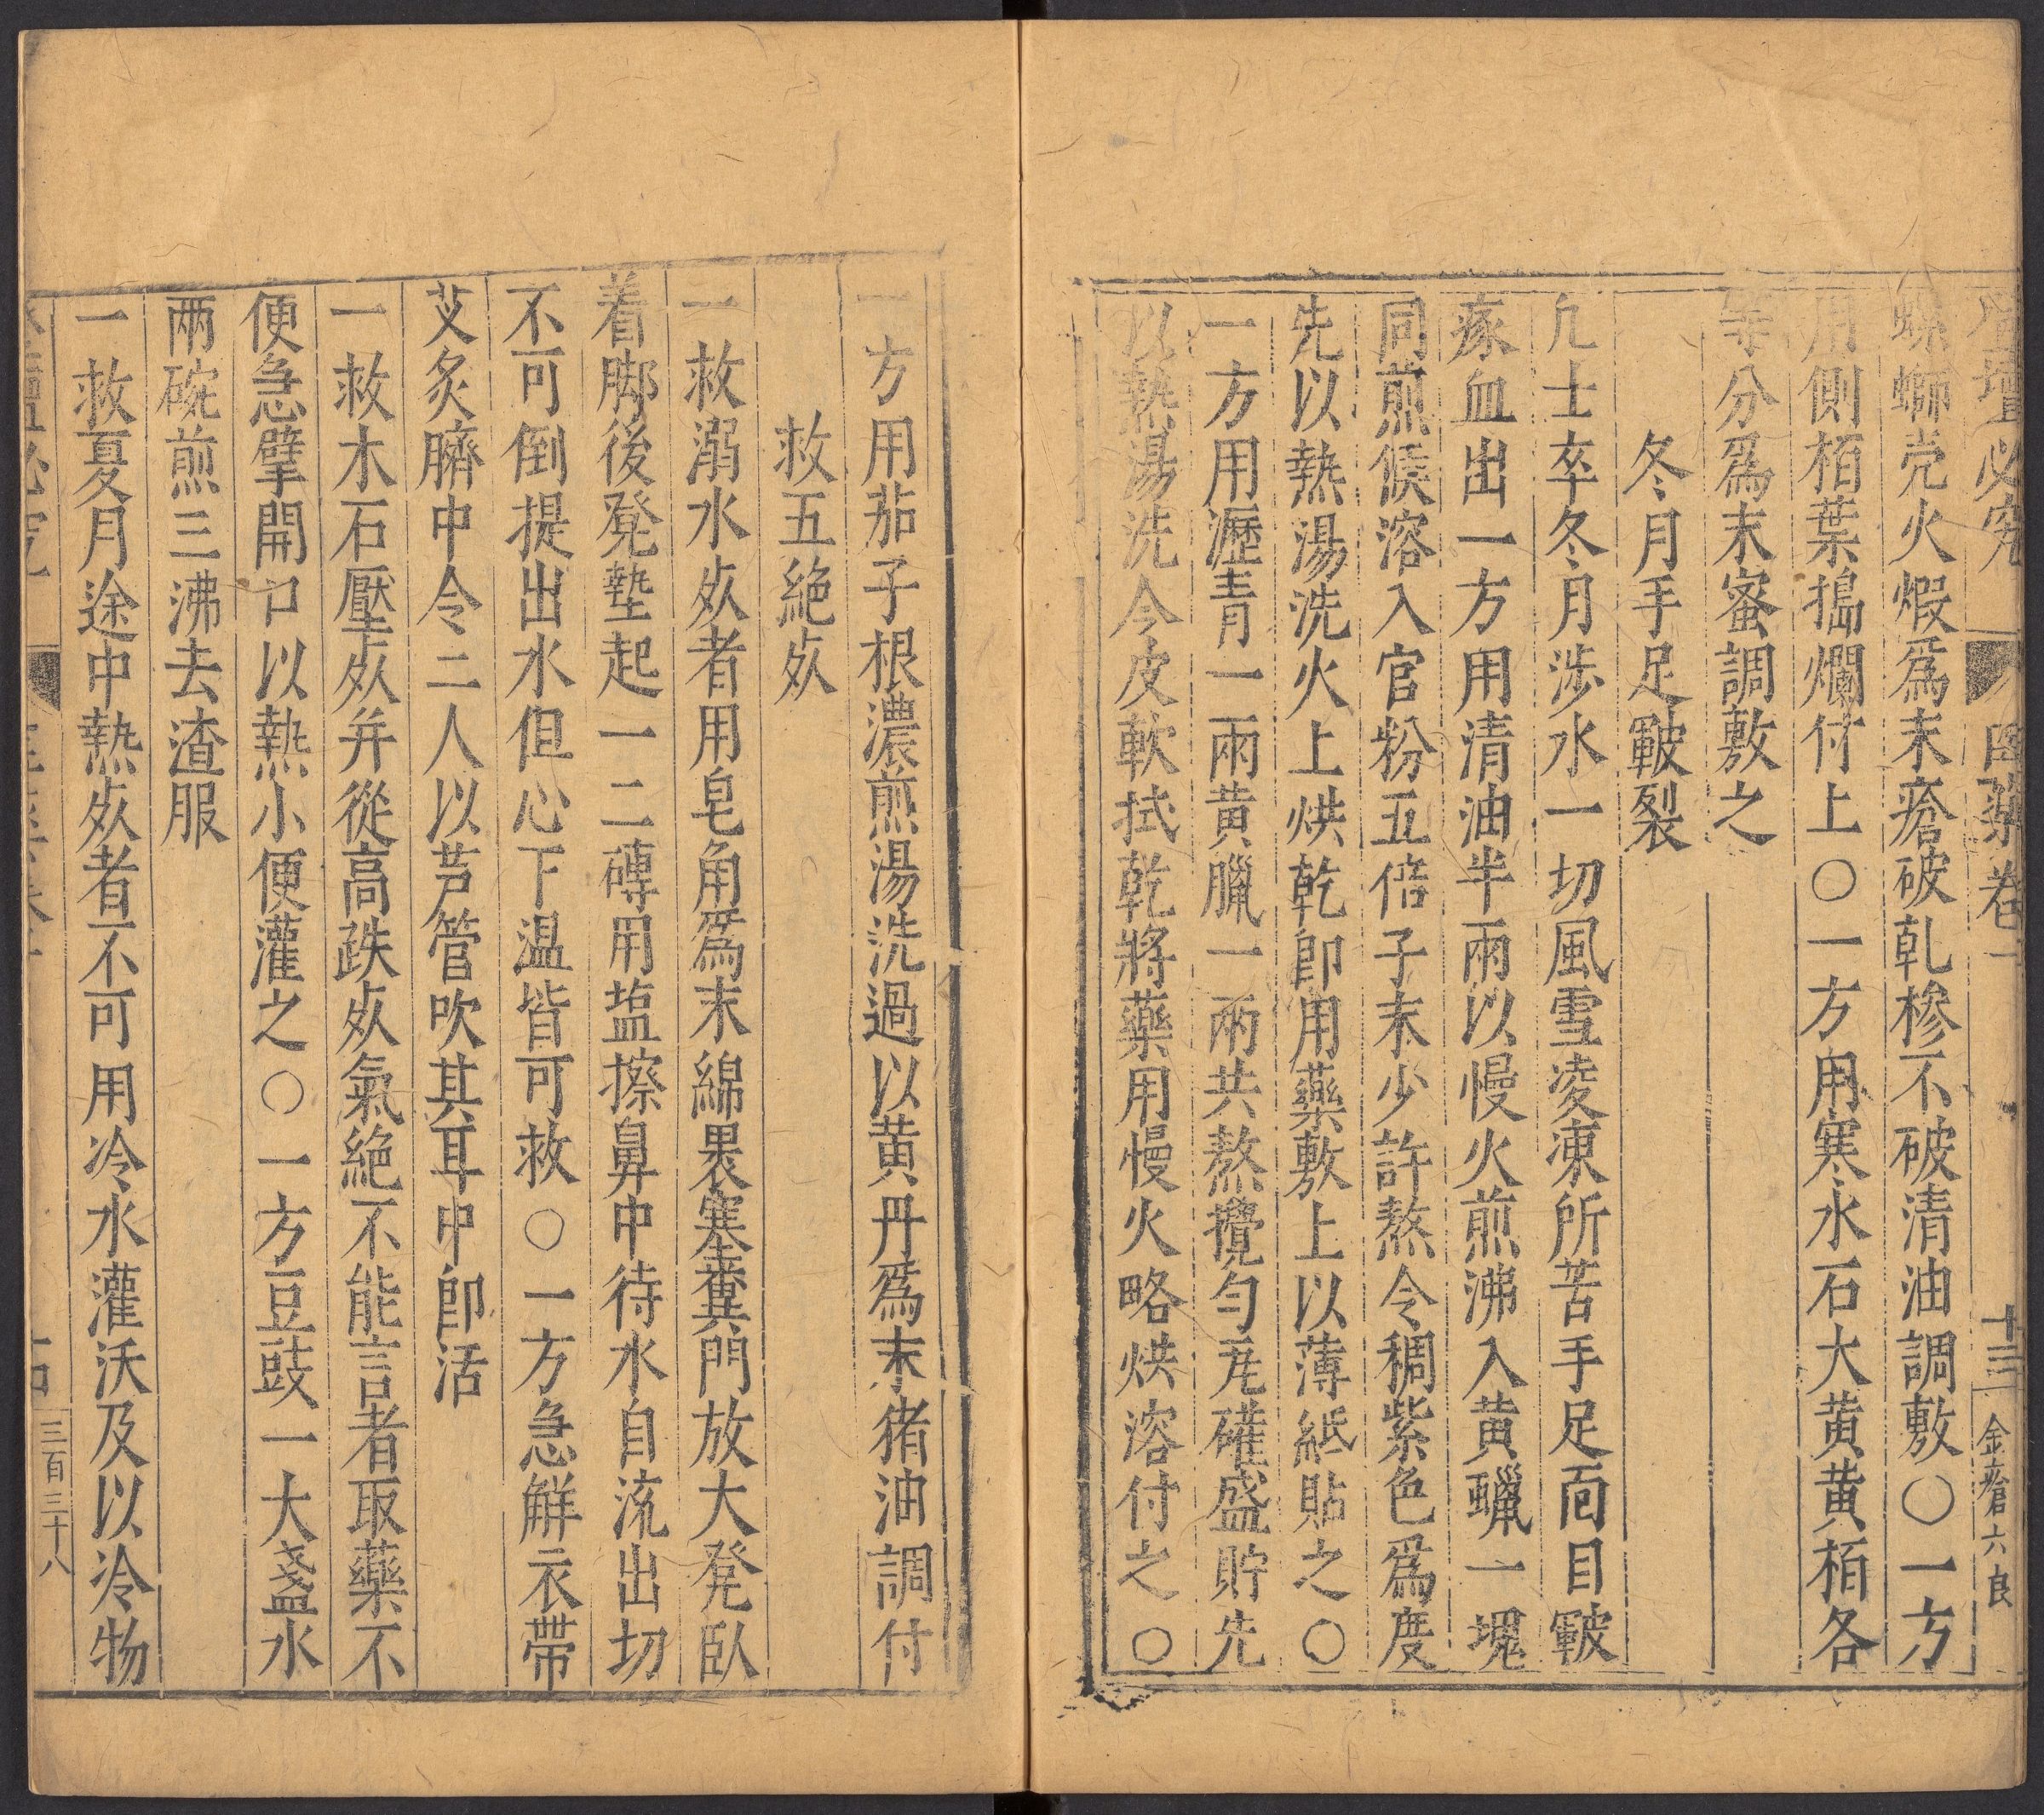 登壇必究 醫藥卷一 十三 金瘡六良
螺螄壳火煅爲末瘡破乹摻不破清油調敷〇一方
用側栢葉搗爛付上〇一方用寒水石大黄黄栢各
等分爲末蜜調敷之
冬月手足皸裂
凢士卒冬月涉水一切風雪凌凍所苦手足面目皸
瘃血出一方用清油半兩以慢火煎沸入黄蠟一塊
同煎候溶入官粉五倍子末少許熬令稠紫色爲度
先以熱湯洗火上烘乾即用藥敷上以薄紙貼之〇
一方用瀝青一兩黄臘一兩共熬攪匀瓦礶盛貯先
以熱湯洗令皮軟拭乾將藥用慢火略烘溶付之〇
一方用茄子根濃煎湯洗過以黄丹爲末猪油調付
救五絶㱙
一救溺水㱙者用皂角爲末綿裹塞糞門放大凳臥
着脚後凳墊起一二磚用塩擦鼻中待水自流出切
不可倒提出水但心下温皆可救〇一方急解衣帶
艾炙臍中令二人以芦管吹其耳中即活
一救木石壓㱙并從高跌㱙氣絶不能言者取藥不
便急擘開口以熱小便灌之〇一方豆豉一大盞水
兩碗煎三沸去渣服
一救夏月途中熱㱙者不可用冷水灌沃及以冷物
三百三十八